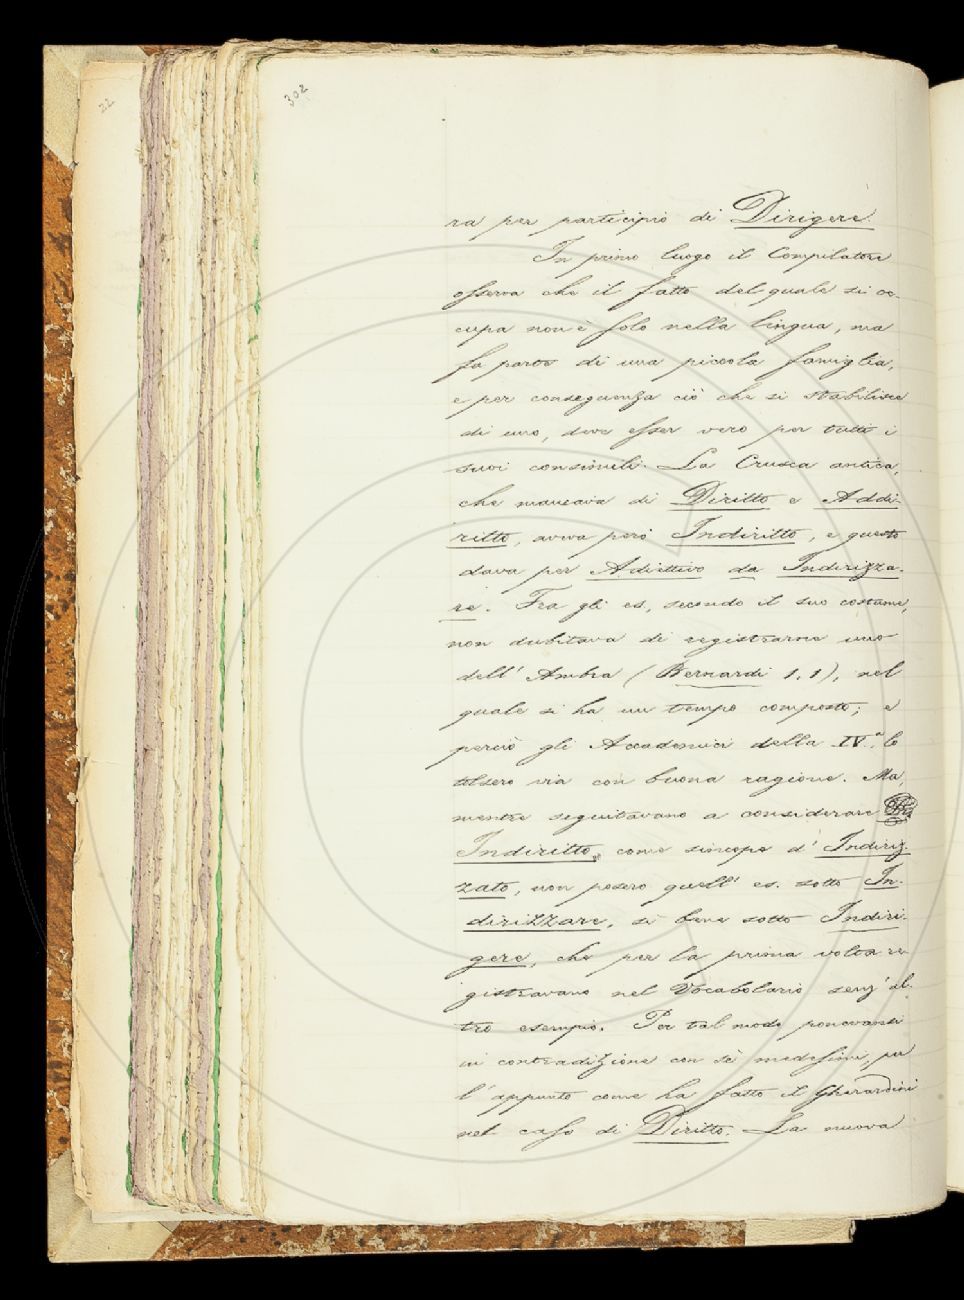 22
302
ra per participio di Dirigere.
In primo luogo il Compilatore
osserva che il fatto del quale si oc-
cupa non è solo nella lingua, ma
fa parte di una piccola famiglia,
e per conseguenza ciò che si stabilisce
di uno, deve esser vero per tutti i
suoi consimili. La Crusca antica,
che mancava di Diritto e Addi-
ritto, aveva però Indiritto, e questo
dava per Adiettivo da Indirizza-
re. Fra gli es., secondo il suo costume,
non dubitava di registrarne uno
dell' Ambra (Bernardi 1, 1), nel
quale si ha un tempo composto; e
perciò gli Accademici della IV.a lo
tolsero via con buona ragione. Ma,
mentre seguitavano a considerare
Indiritto, come sincope d' Indiriz-
zato, non posero quell' es. sotto In-
dirizzare, sì bene sotto Indiri-
gere, che per la prima volta re-
gistravano nel Vocabolario senz' al-
tro esempio. Per tal modo ponevansi
in contradizione con sè medesimi, per
l' appunto come ha fatto il Gherardini
nel caso di Diritto. La nuova